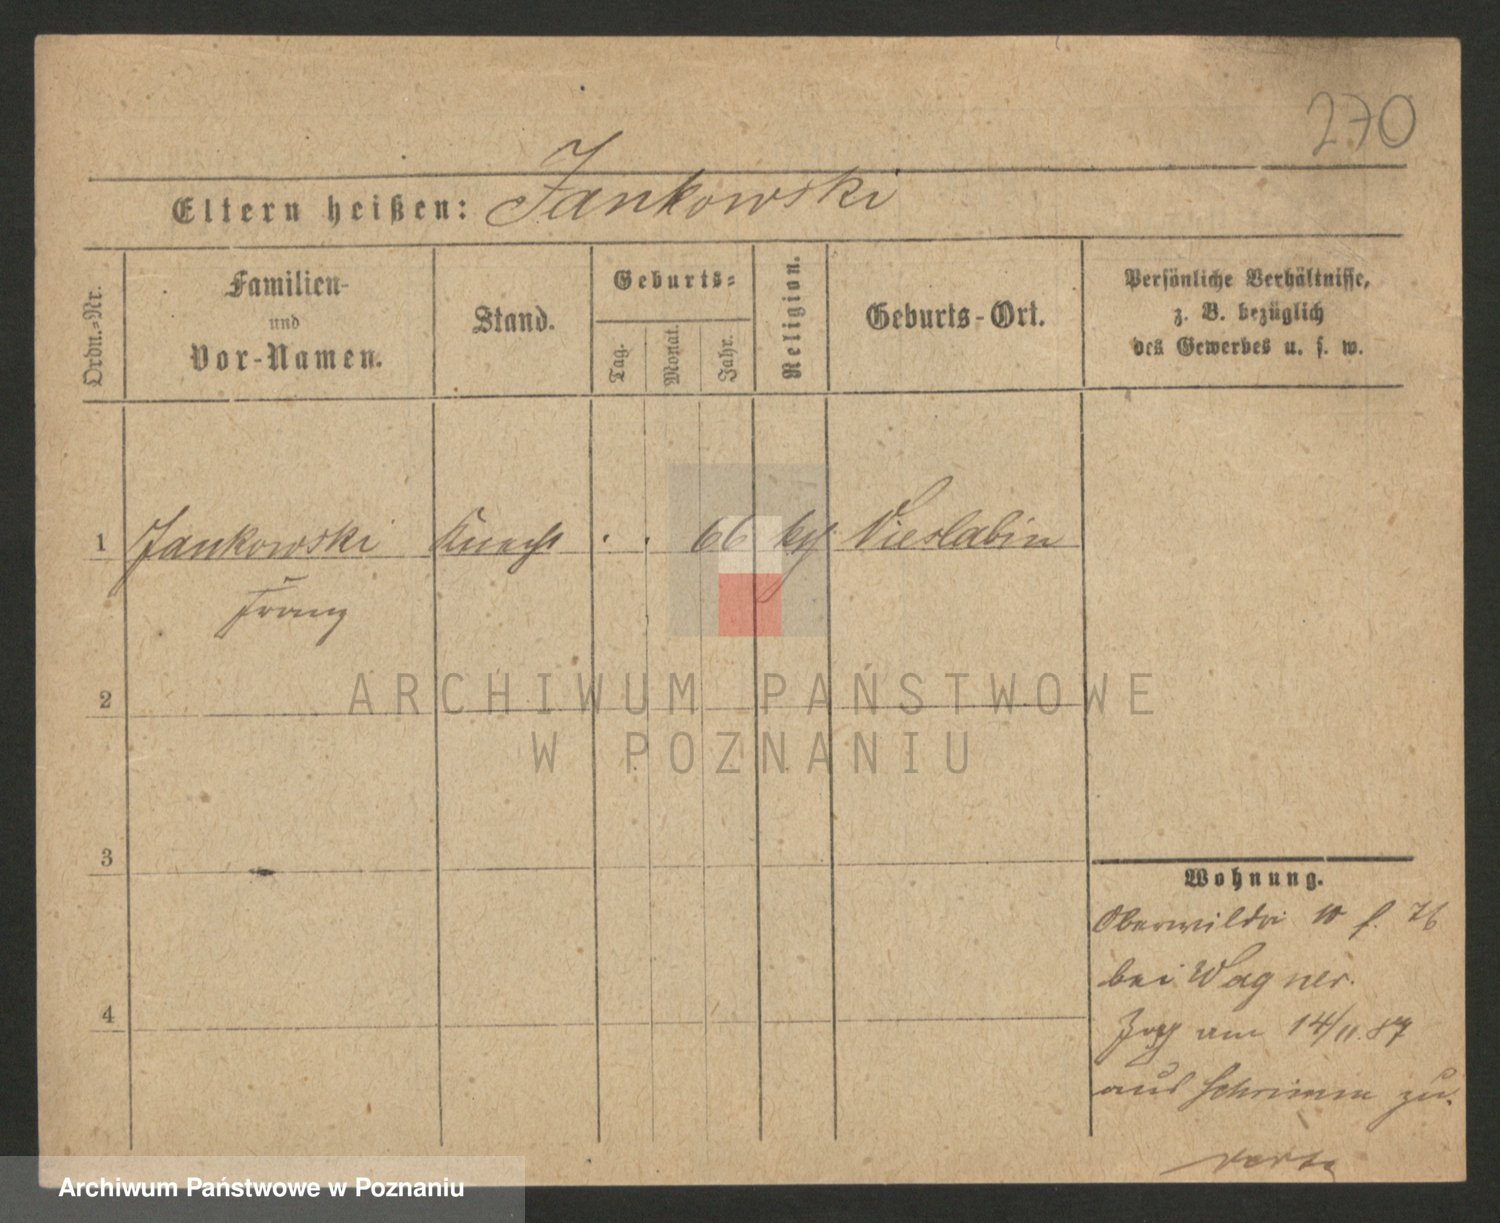 270
Eltern heißen: Jankowski
Ordn.-Nr.
Familien-
und
Vor-Namen.
Stand.
Geburts-
Tag.
Monat.
Jahr.
Religion.
Geburts-Ort.
Persönliche Verhältnisse,
z. B. bezüglich
des Gewerbes u. s. w.
1 Jankowski Knecht . . 66 kth
Franz
2
3
4
Wohnung.
bei Wagner.
Zog am 14/11.87
aus Schrimm zu.
verte
ARCHIWUM PAŃSTWOWE
W POZNANIU
Archiwum Państwowe w Poznaniu